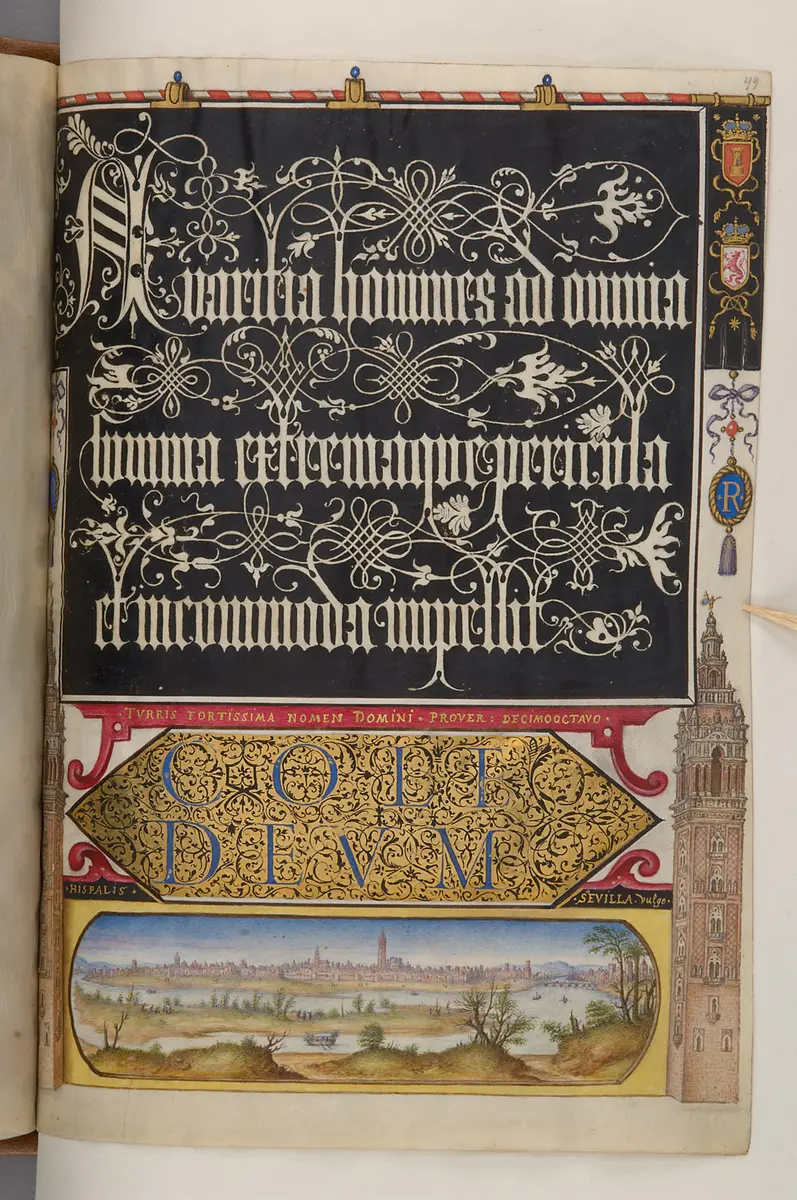 49
Auaritia homines ad omnia
humana extremaque pericula
et incommoda impellit
R
·TVRRIS FORTISSIMA NOMEN DOMINI · PROVER: DECIMOOCTAVO·
COLI
DEVM
·HISPALIS·
·SEVILLA· vulgo·